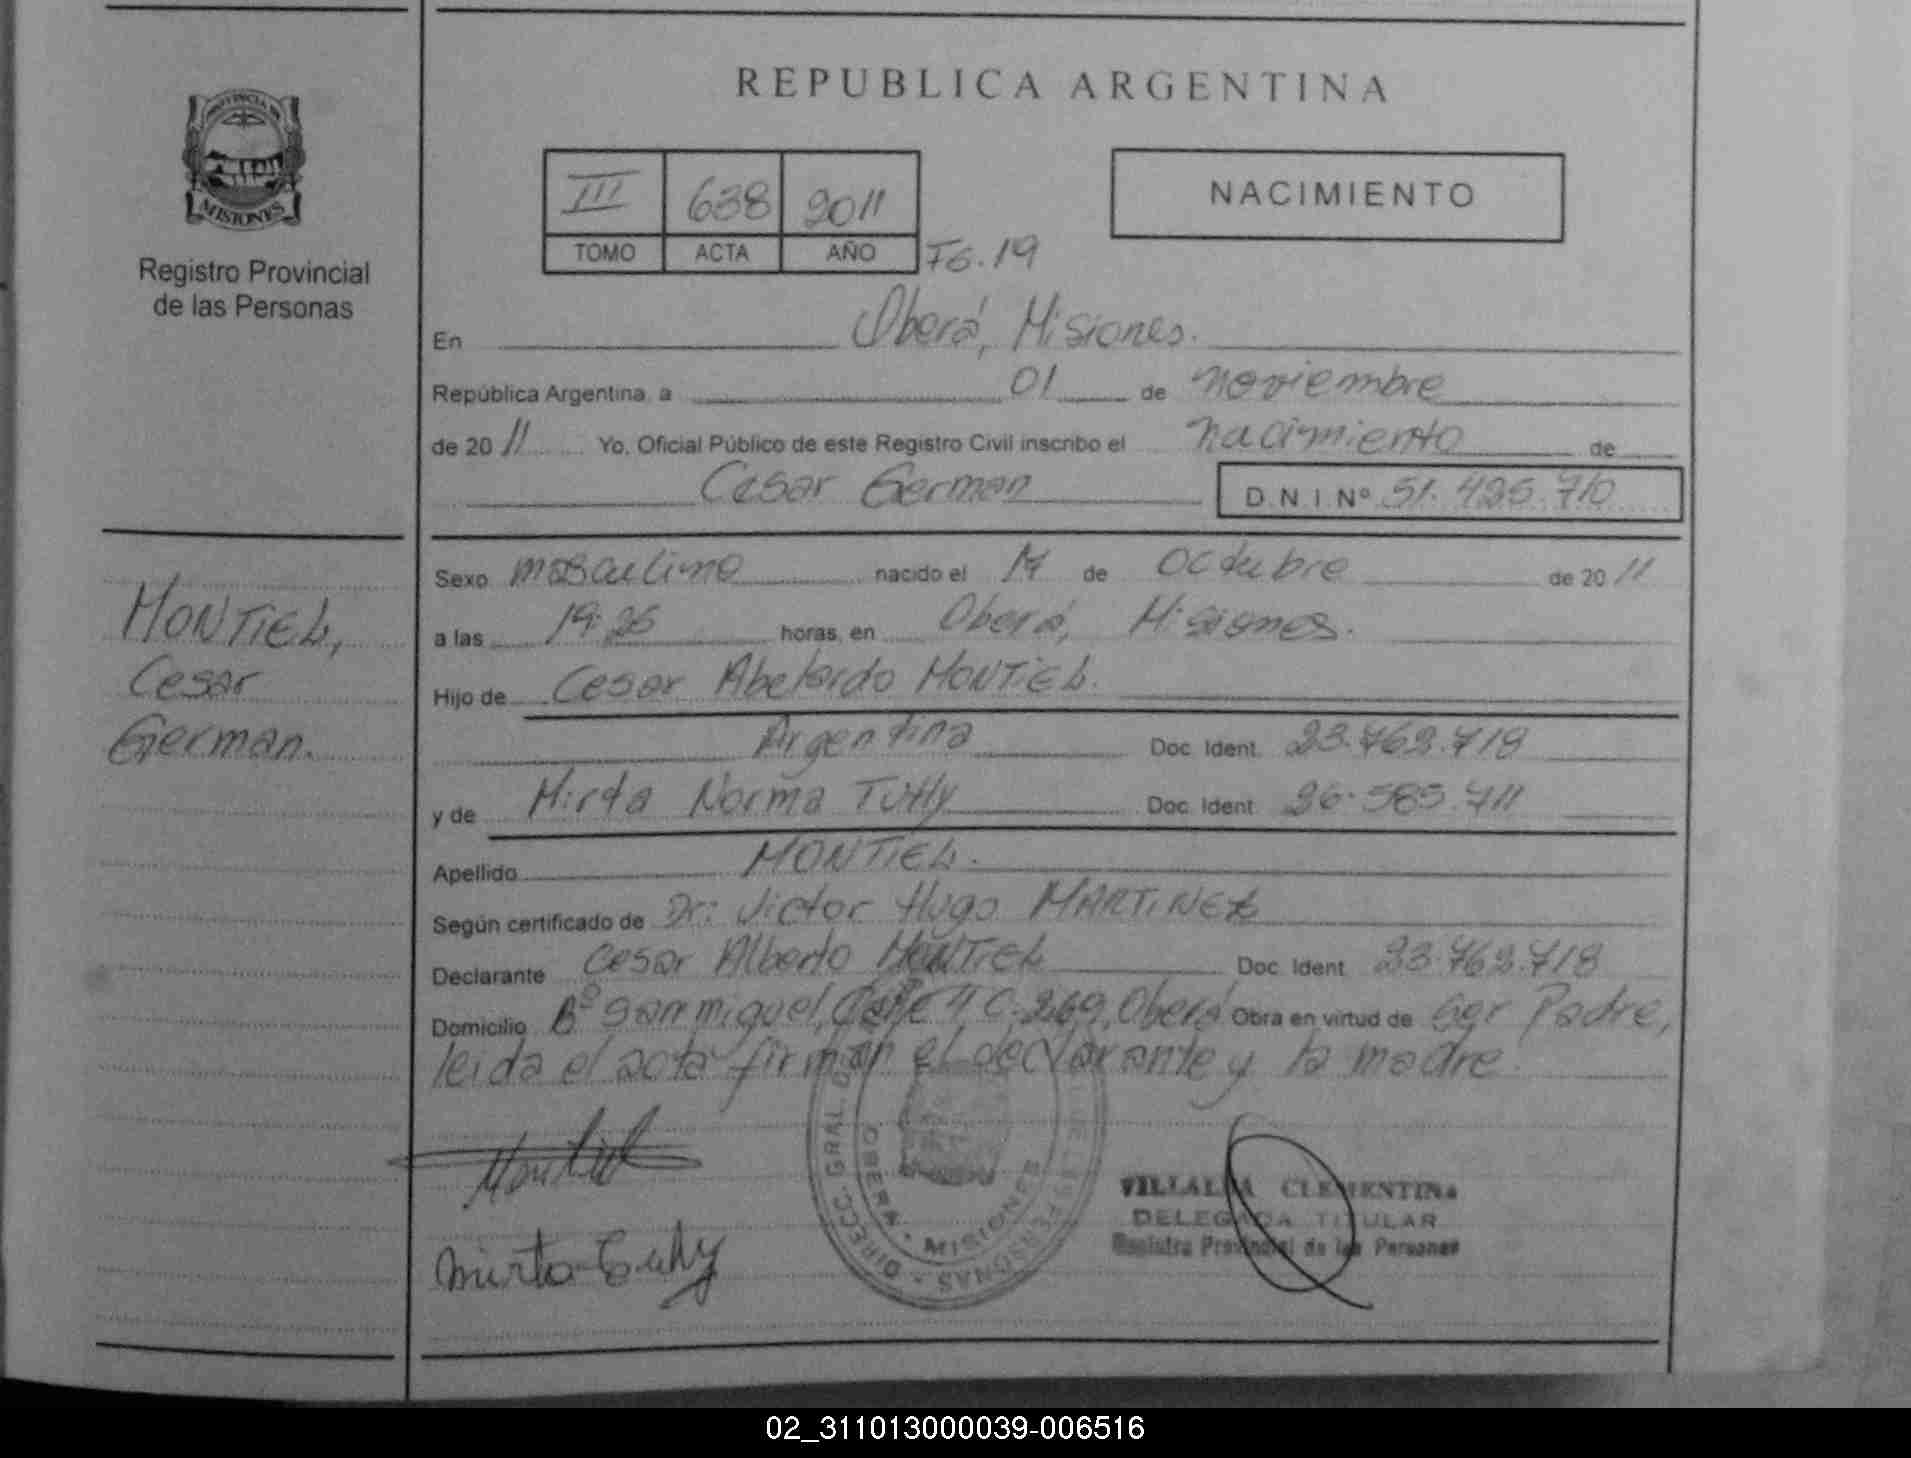 PROVINCIA DE
MISIONES
Registro Provincial
de las Personas
REPUBLICA ARGENTINA
III 638 2011
TOMO ACTA AÑO Fo. 19
NACIMIENTO
En Oberá, Misiones.
República Argentina, a 01 de noviembre
de 2011 Yo, Oficial Público de este Registro Civil inscribo el nacimiento de
Cesar German D.N.I.Nº 51.425.710
Sexo masculino nacido el 17 de octubre de 2011
a las 19:26 horas, en Oberá, Misiones.
Hijo de Cesar Abelardo MONTIEL.
Argentina Doc. Ident. 23.762.718
y de Mirta Norma Tutly Doc. Ident. 26.585.711
Apellido MONTIEL.
Según certificado de Dr: Victor Hugo MARTINEZ
Declarante Cesar Alberto MONTIEL Doc. Ident. 23.762.718
Domicilio Bº San miguel, Calle 11 C. 269, Oberá Obra en virtud de ser Padre,
leida el acta firman el declarante y la madre.
MONTIEL,
Cesar
German.
Montiel
mirta
DIRECC. GRAL. DE LAS PERSONAS
OBERA • MISIONES
VILLALBA CLEMENTINA
DELEGADA TITULAR
Registro Provincial de las Personas
02_311013000039-006516